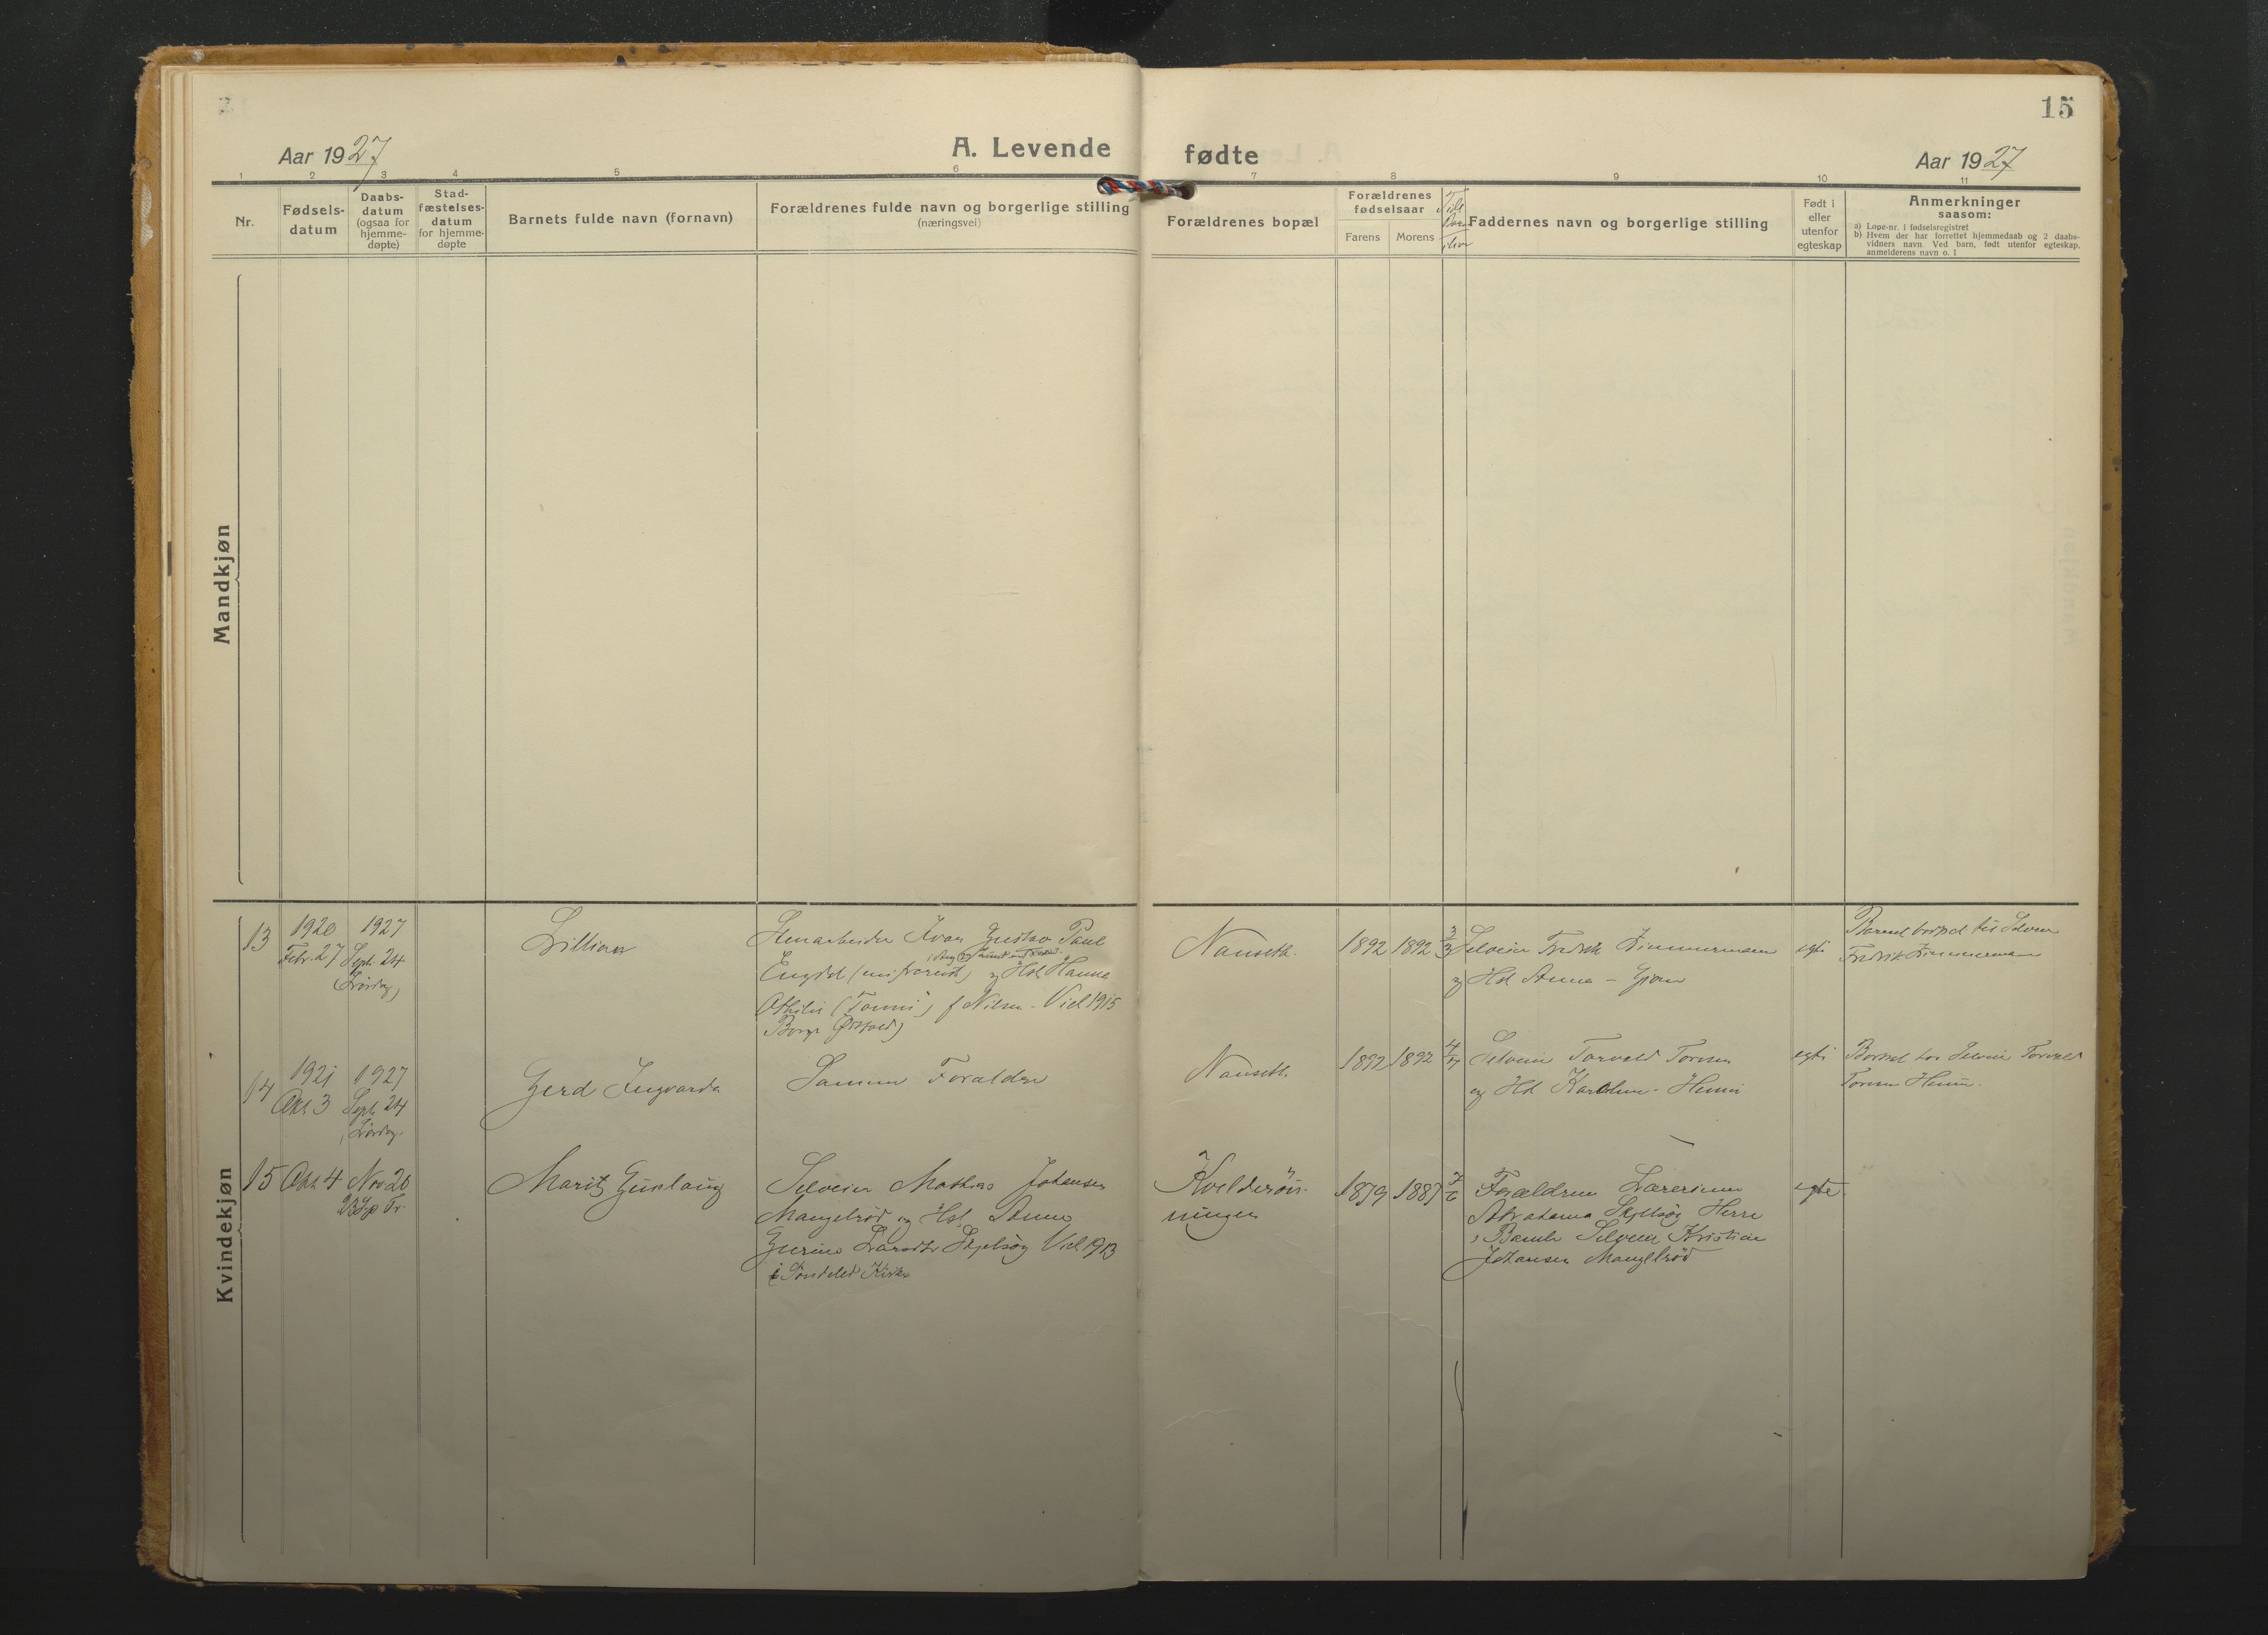 15
Aar 1927
A. Levende fødte
Aar 1927
1 2 3 4 5 6 7 8 9 10 11
Nr.
Fødsels-
datum
Daabs-
datum
(ogsaa for
hjemme-
døpte)
Stad-
fæstelses-
datum
for hjemme-
døpte
Barnets fulde navn (fornavn)
Forældrenes fulde navn og borgerlige stilling
(næringsvei)
Forældrenes bopæl
Forældrenes
fødselsaar
Farens
Morens
Faddernes navn og borgerlige stilling
Født i
eller
utenfor
egteskap
Anmerkninger
saasom:
a) Løpe-nr. i fødselsregistret
b) Hvem der har forrettet hjemmedaab og 2 daabs-
vidners navn Ved barn, født utenfor egteskap,
anmelderens navn o. l
Mandkjøn
Kvindekjøn
13
1920
Febr. 27
1927
Sept. 24
Lørdag
Lillian
Ivar Gustav Paul
Engdal og Hst Hanna
Othilie f Nilsen - Vied 1915
Borge Østfold)
Nanseth.
1892
1892
3/3
Selveier Fredrik Zimmermann
og Hst Anna - Gjøm
egte
Barnet bortsat til Selveier
Fredrik Zimmermann
14
1921
Okt. 3
1927
Sept. 24
Lørdag.
Gerd Ingvarda
Samme Foraldre
Nanseth.
1892
1892
4/4
Selveier Torvald Torsen
og Hst
egte
Bortsat hos Selveier Torvald
Torsen
15
Okt. 4
Nov 20
23 S. e. Tr.
Marit Gunlaug
Selveier Mathias Johansen
Mangelrød og Hst. Anne
Gurine Larsdtr Skjelsøg Vied 1913
i Søndeled Kirke
1879
1887
7/6
Foraldrene Lærerinne
Abrahama Skjelsøg Herre
i Bamle Selveier Kristian
Johansen Mangelrød
egte.